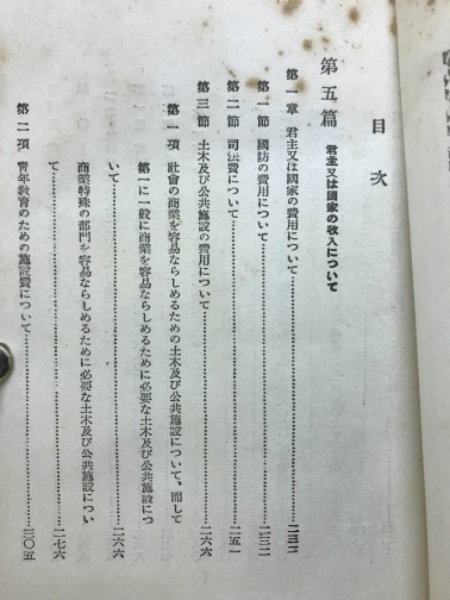 目次
第五篇 君主又は國家の收入について
第一章 君主又は國家の費用について……一三二
第一節 國防の費用について……一三二
第二節 司法費について……一五一
第三節 土木及び公共施設の費用について……一六六
第一項 社會の商業を容易ならしめるための土木及び公共施設について、而して
第一に一般に商業を容易ならしめるために必要な土木及び公共施設につ
いて……一六六
商業特殊の部門を容易ならしめるために必要な土木及び公共施設につい
て……一七六
第二項 靑年敎育のための施設費について……三〇五